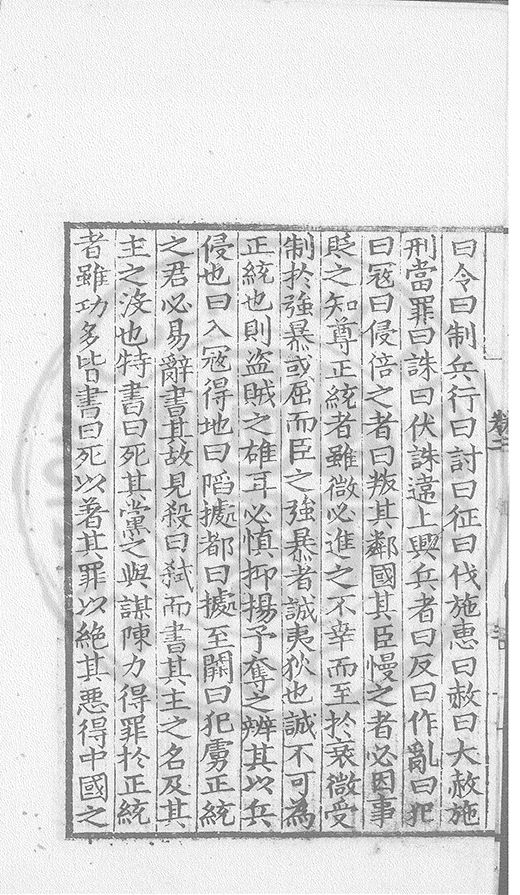 曰令曰制兵行曰討曰征曰伐施恵曰赦曰大赦施
刑當罪曰誅曰伏誅違上興兵者曰反曰作亂曰犯
曰冦曰侵倍之者曰叛其鄰國其臣慢之者必因事
貶之知尊正統者雖微必進之不幸而至扵衰微受
制扵強暴或屈而臣之強暴者誠夷狄也誠不可為
正統也則盗賊之雄耳必慎抑揚予奪之辨其以兵
侵也曰入冦得地曰䧟據都曰據至闕曰犯虜正統
之君必易辭書其故見殺曰弑而書其主之名及其
主之沒也特書曰死其黨之與謀陳力得罪扵正統
者雖功多皆書曰死以著其罪以絶其惡得中國之
卷二